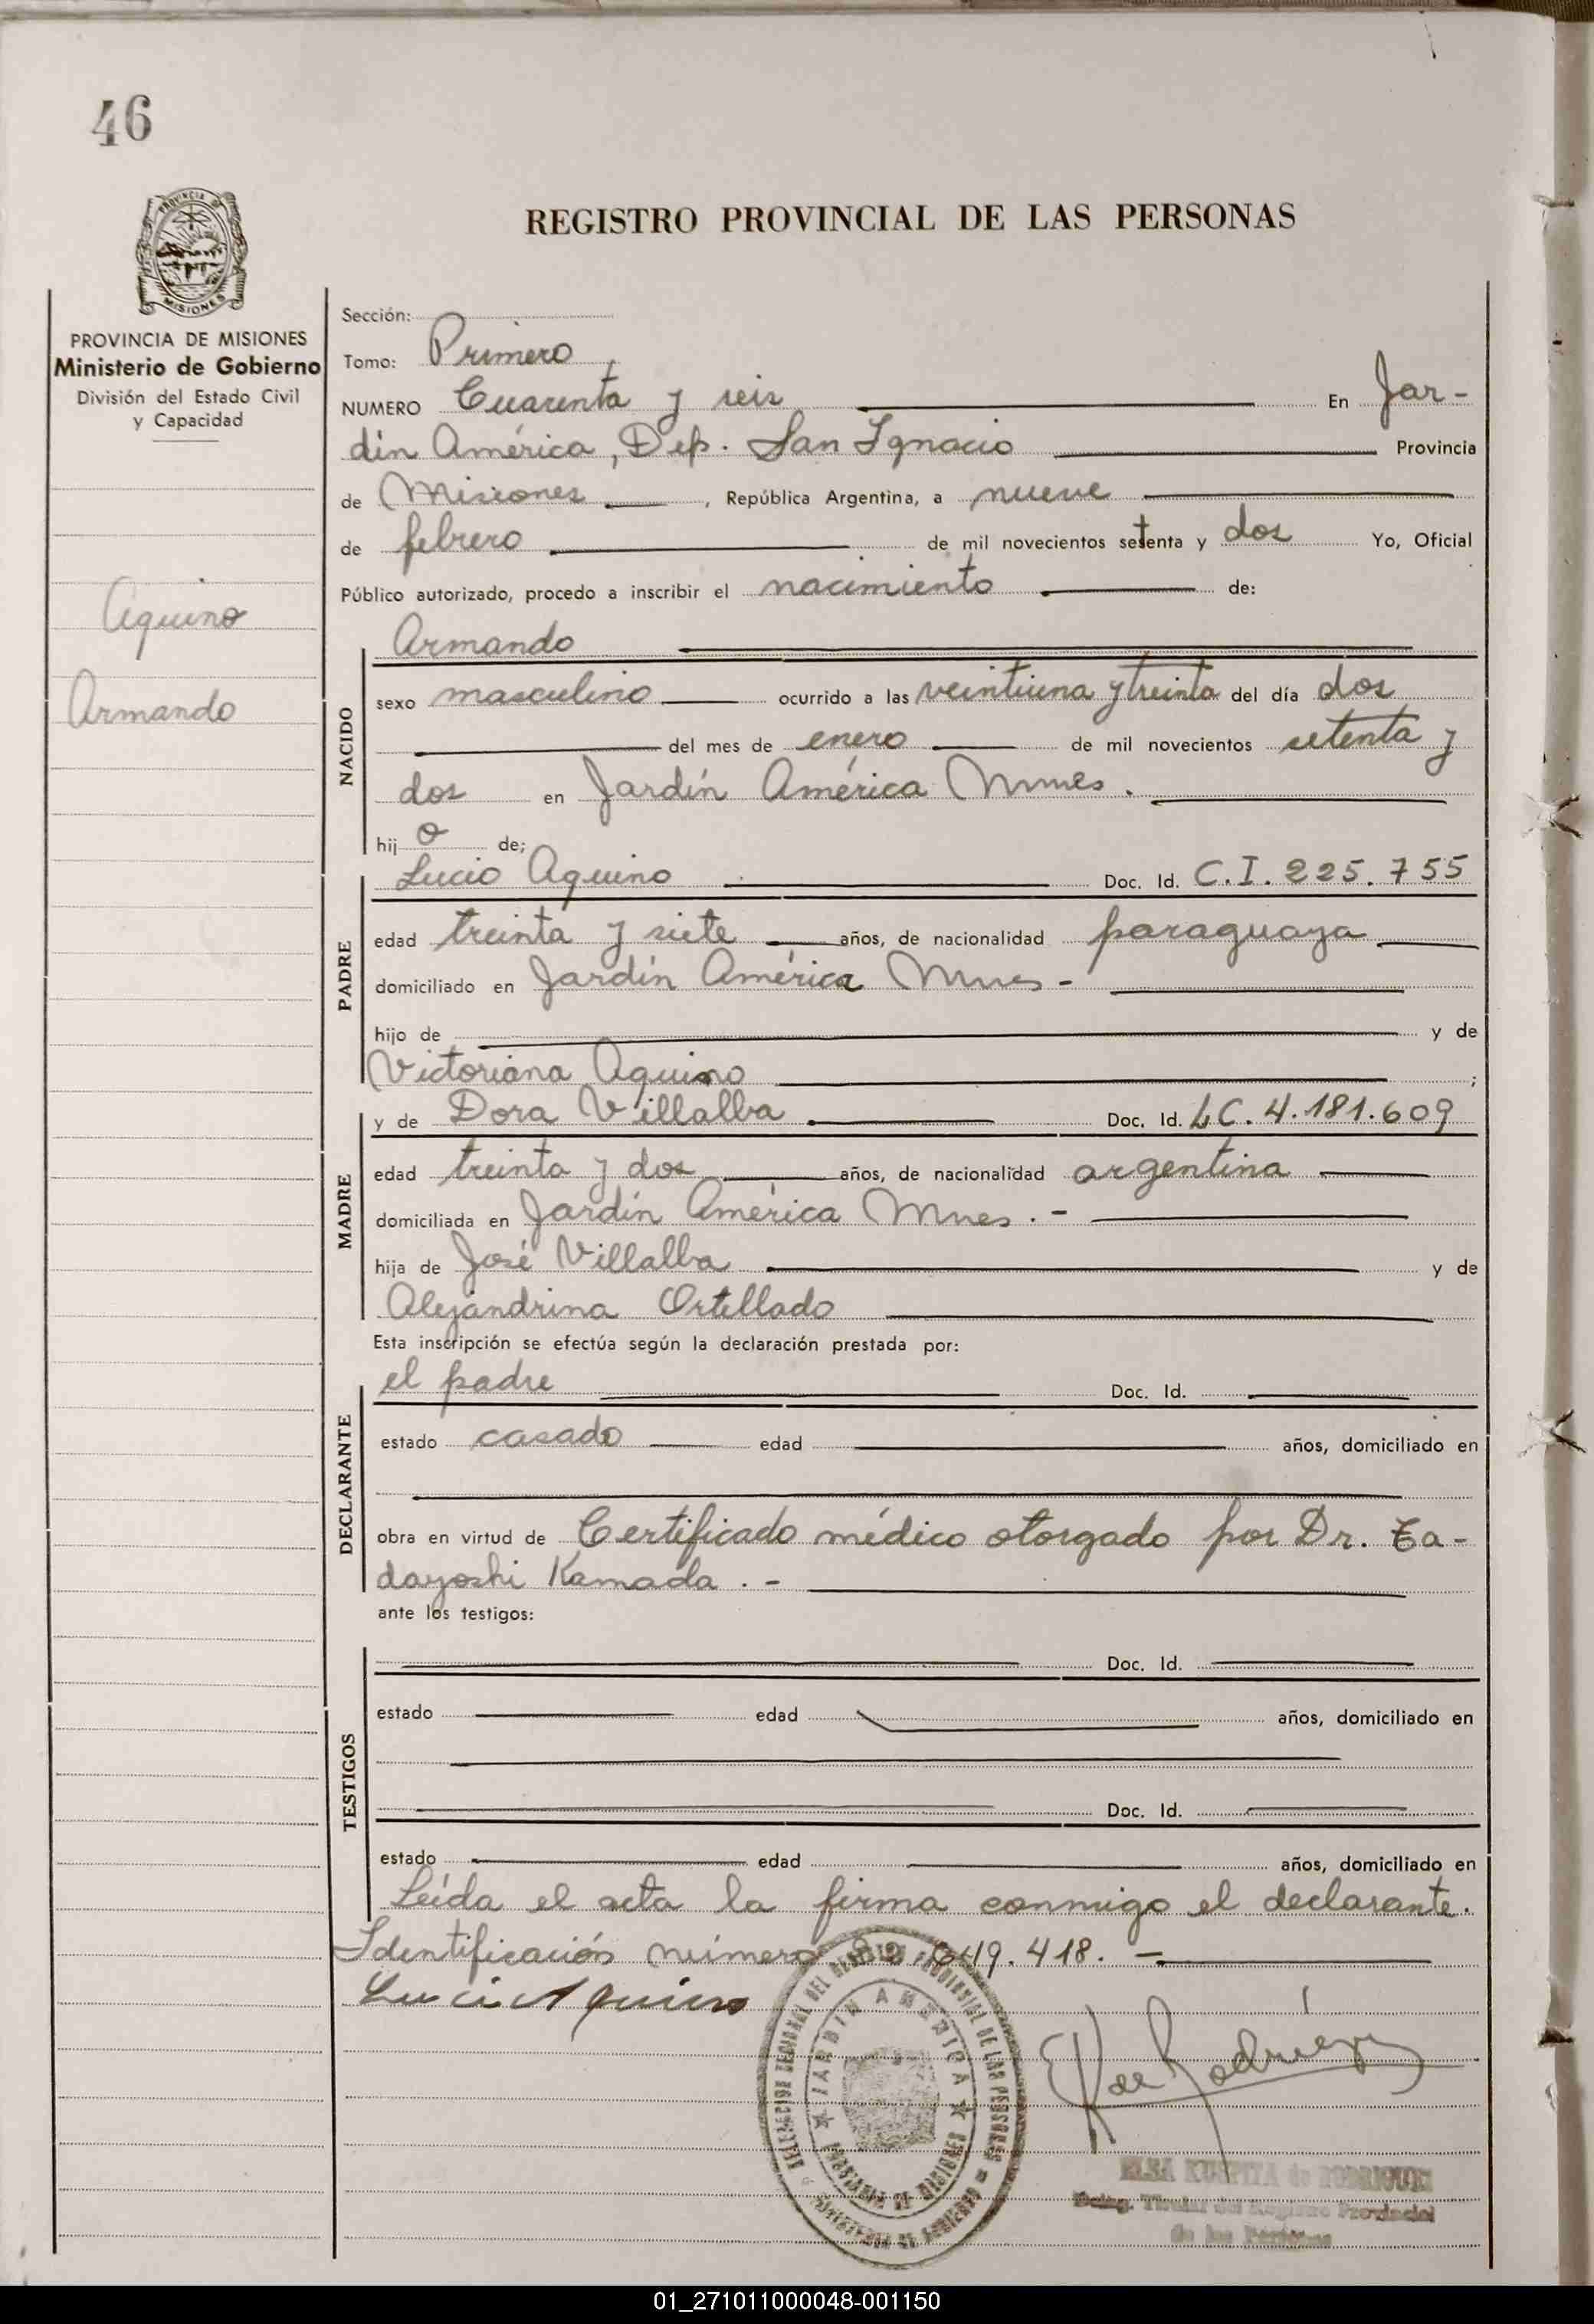 46
PROVINCIA DE MISIONES
PROVINCIA DE MISIONES
Ministerio de Gobierno
División del Estado Civil
y Capacidad
Aquino
Armando
REGISTRO PROVINCIAL DE LAS PERSONAS
Sección:
Tomo: Primero
NUMERO Cuarenta y seis En Jar-
dín América, Dep. San Ignacio Provincia
de Misiones, República Argentina, a nueve
de febrero de mil novecientos setenta y dos Yo, Oficial
Público autorizado, procedo a inscribir el nacimiento de:
Armando
NACIDO
sexo masculino ocurrido a las veintiuna y treinta del día dos
del mes de enero de mil novecientos setenta y
dos en Jardín América Mnes.
hijo de;
Lucio Aquino Doc. Id. C.I. 225.755
PADRE
edad treinta y siete años, de nacionalidad paraguaya
domiciliado en Jardín América Mnes-
hijo de y de
Victoriana Aquino ;
y de Dora Villalba Doc. Id. LC. 4.181.609
MADRE
edad treinta y dos años, de nacionalidad argentina
domiciliada en Jardín América Mnes.-
hija de José Villalba y de
Alejandrina Ortellado
Esta inscripción se efectúa según la declaración prestada por:
el padre Doc. Id.
DECLARANTE
estado casado edad años, domiciliado en
obra en virtud de Certificado médico otorgado por Dr. Ta-
dayoshi Kamada.-
ante los testigos:
Doc. Id.
TESTIGOS
estado edad años, domiciliado en
Doc. Id.
estado edad años, domiciliado en
Leída el acta la firma conmigo el declarante.
Identificación número 49.418.-
Lucio Aquino
DELEGACION REGIONAL DEL REGISTRO PROVINCIAL DE LAS PERSONAS
JARDIN AMERICA
de Rodríguez
ELSA de RODRIGUEZ
Deleg. Titular del Registro Provincial
de las Personas
01_271011000048-001150